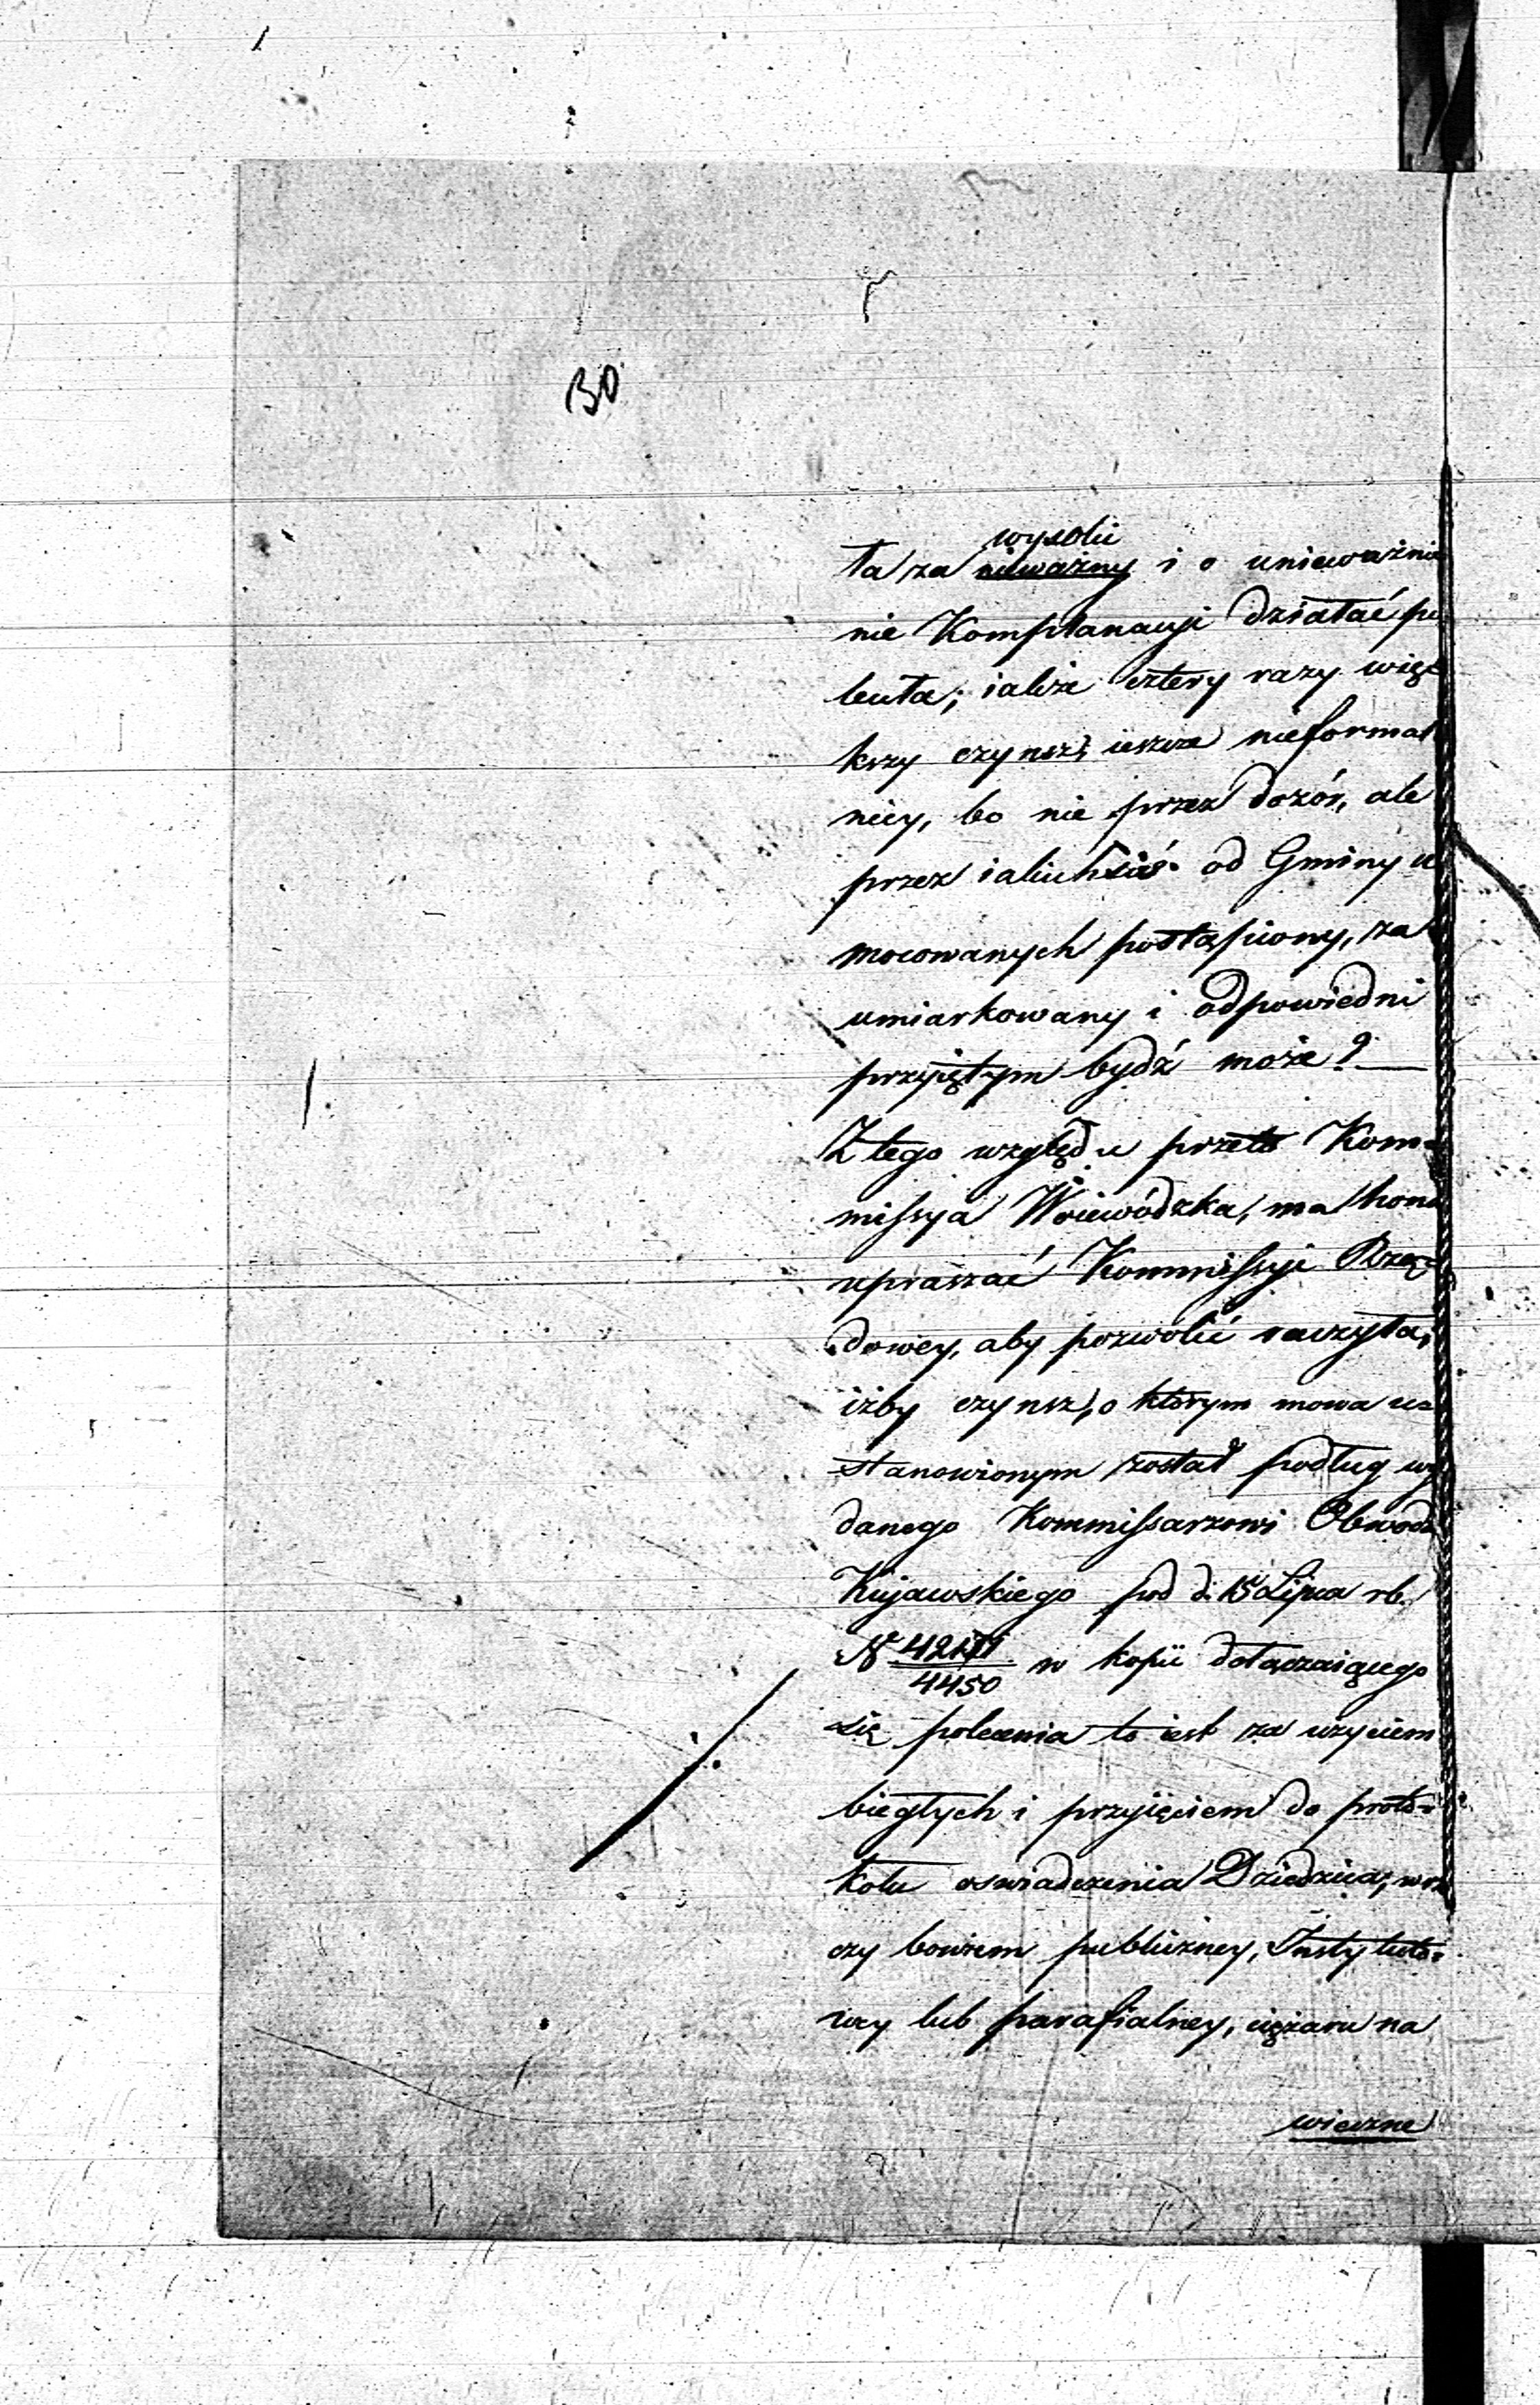 30
wysoki
ła za nieważny i o unieważnie
nie Komplanacyi działać po
leciła; iakże cztery razy więk
kszy czynsz, ieszcze nieformal
niey, bo nie przez dozór, ale
przez iakichsiś od Gminy u
mocowanych postąpiony, za
umiarkowany i odpowiedni
przyiętym bydź może? —
Z tego względu przeto Kom-
missya Woiewódzka, ma hono
upraszać Kommissyi Rzą-
dowey, aby pozwolić raczyła,
iżby czynsz, o którym mowa us
stanowionym został podług wy
danego Kommissarzowi Obwodu
Kujawskiego pod d. 15 Lipca rb.
N 42171/4450 w kopii dołączaiącego
się polecenia to iest za użyciem
biegłych i przyięciem do proto-
kołu oswiadczenia Dziedzica; w rze
czy bowiem publiczney, Instytuto-
wey lub parafialney, ciężaru na
wieczne